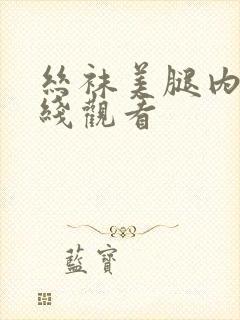 絲袜美腿内
綫觀看
藍寶